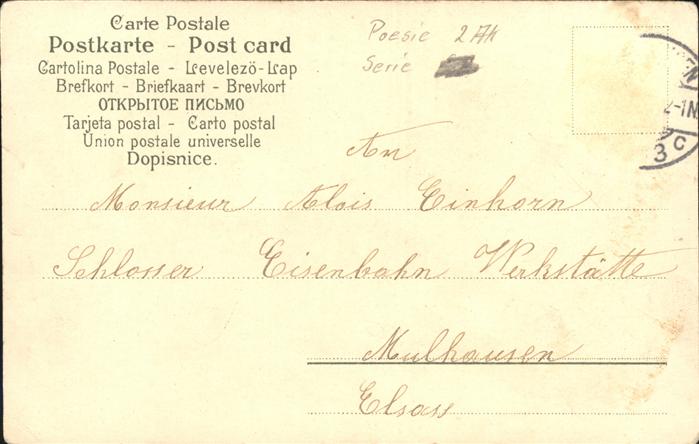 Carte Postale
Postkarte - Post card
Cartolina Postale - Levelezö-Lap
Brefkort - Briefkaart - Brevkort
ОТКРЫТОЕ ПИСЬМО
Tarjeta postal - Carto postal
Union postale universelle
Dopisnice.
Poesie 2 Mk
Serie
3 C
An
Monsieur Alois Einhorn
Schlosser Eisenbahn Werkstätte
Mulhausen
Elsass